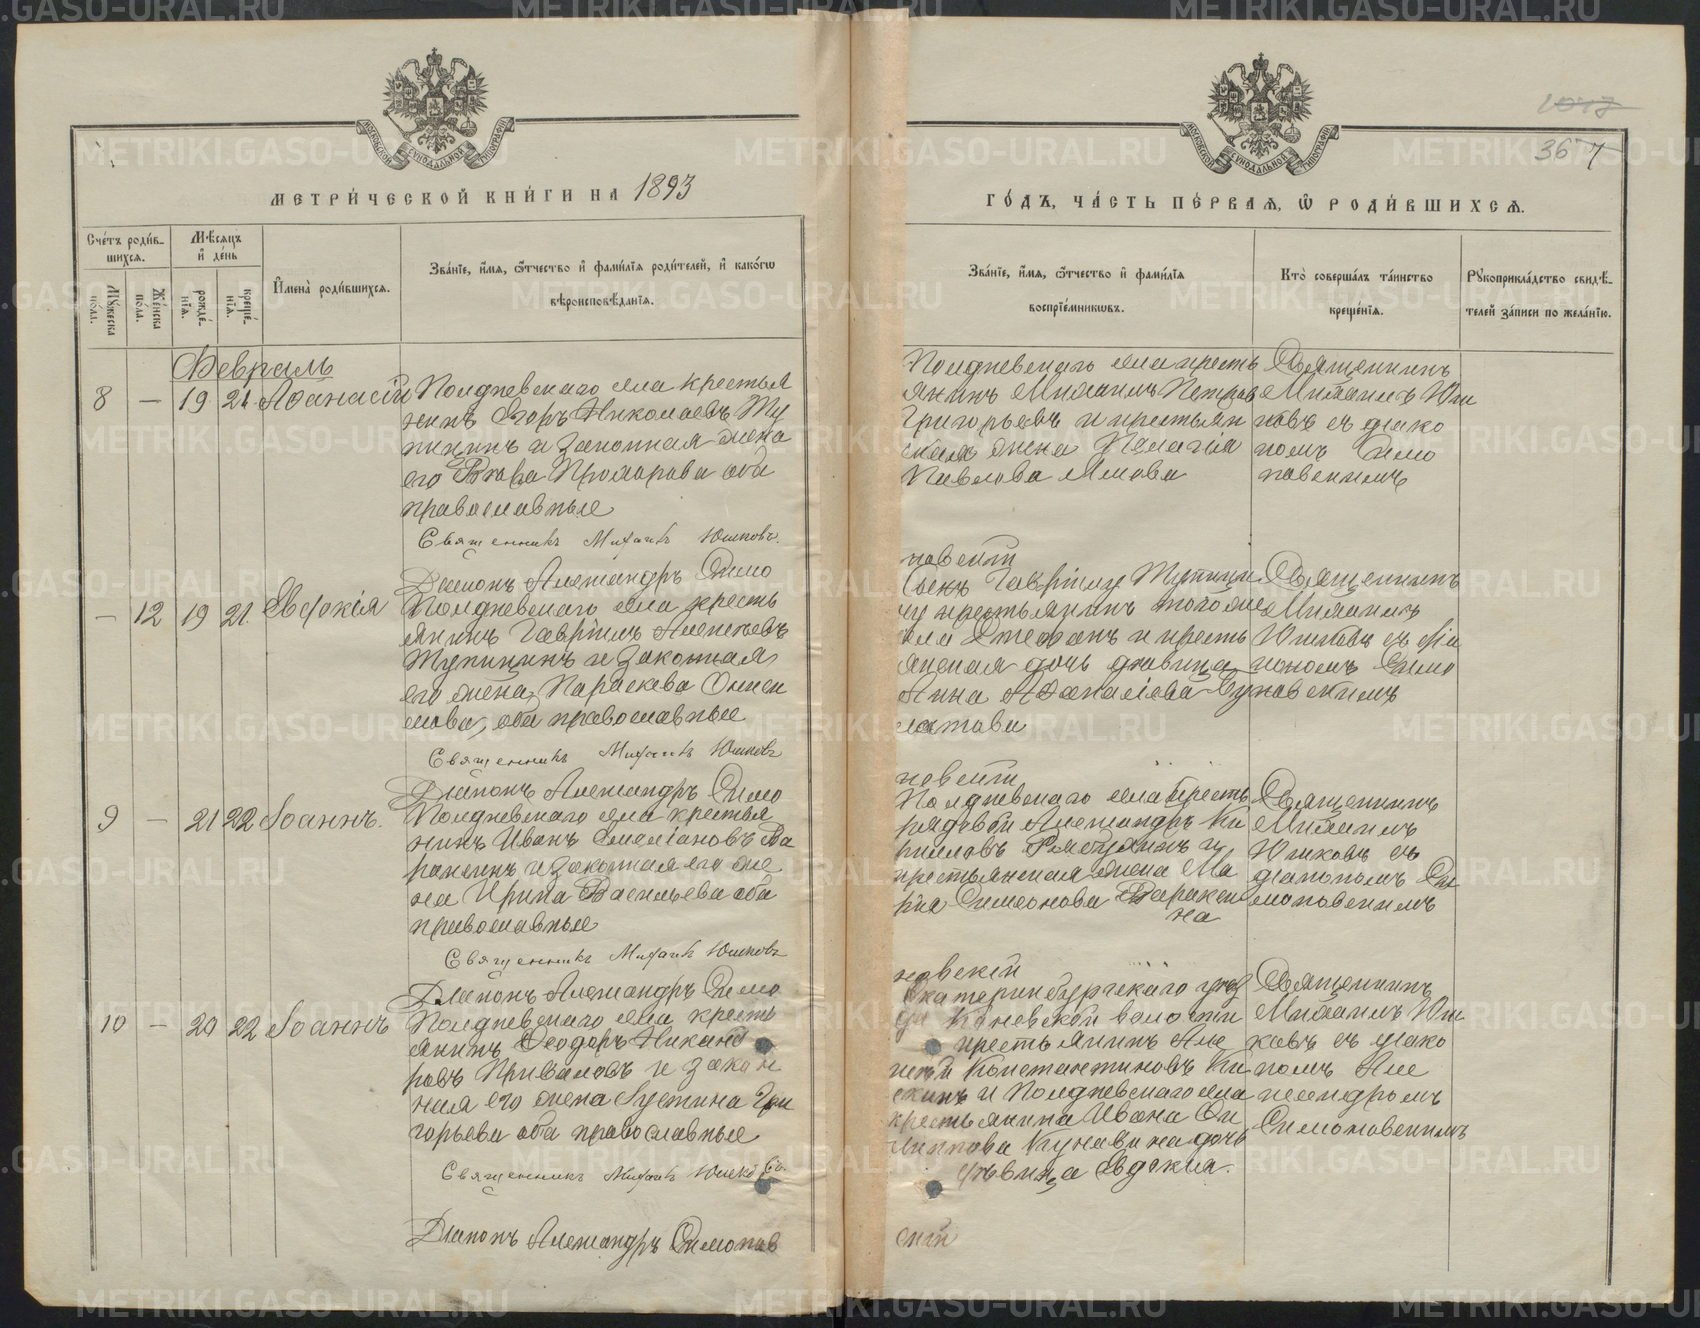 1893
367
МЕТРИ́ЧЕСКОЙ КНИ́ГИ НА 1893
ГО́ДЪ, ЧА́СТЬ ПЕ́РВАЯ, Ѡ РОДИ́ВШИХСЯ.
Сче́тъ роди́в-
шихся.
Мѣ́сяцъ
и҆ де́нь
И҆мена̀ роди́вшихся.
Зва́нїе, и҆́мя, ѻ҆́тчество и҆ фами́лїя роди́телей, и҆ како́гѡ
вѣроисповѣ́данїя.
Му́жеска по́ла.
Же́нска по́ла.
рожде́-нїя.
креще́-нїя.
Зва́нїе, и҆́мя, ѻ҆́тчество и҆ фами́лїя
воспрїе́мникѡвъ.
Кто̀ соверша́лъ та́инство
креще́нїя.
Рꙋкоприкла́дство свидѣ́-
телей за́писи по жела́нїю.
Февраль
8 — 19 21 Аѳанасій
Полдневскаго села крестья
нинъ Егоръ Николаевъ Ту
пицинъ и законная жена
его
оба
православные
Священникъ Михаилъ Юшковъ.
Діаконъ Александръ Симо
новскій
Полдневскаго села кресть
янинъ Михаилъ Петровъ
Григорьевъ и крестьян
ская жена Пелагія
Павлова
Священникъ
Михаилъ Юш
ковъ съ діако
номъ Симо
новскимъ
— 12 19 21. Евдокія
Полдневскаго села кресть
янинъ Гавріилъ Алексѣевъ
Тупицинъ и законная
его жена Параскева
оба православные
Священникъ Михаилъ Юшковъ
Діаконъ Александръ Симо
новскій
Гавріилу Тупици
ну крестьянинъ тогоже
села Стефанъ и кресть
янская дочь дѣвица
Анна Аѳанасіева
Священникъ
Михаилъ
Юшковъ съ діа
кономъ Симо
новскимъ
9 — 21 22 Іоаннъ.
Полдневскаго села крестья
нинъ Иванъ Емеліановъ Ба
ракинъ и законная его же
на Ирина Васильева оба
православные
Священникъ Михаилъ Юшковъ
Діаконъ Александръ Симо
новскій
Полдневскаго села
рядовой Александръ Ки
рилловъ и
крестьянская жена Ма
рія Симеонова Бараки
на
Священникъ
Михаилъ
Юшковъ съ
діакономъ Си
моновскимъ
10 — 20 22 Іоаннъ
Полдневскаго села кресть
янинъ Ѳеодоръ Никано
ровъ Приваловъ и закон
ная его жена Іустина Гри
горьева оба православные
Священникъ Михаилъ Юшковъ
Діаконъ Александръ Симонов
скій
Екатеринбургскаго уѣз
да Коневской волости
крестьянинъ Але
ксѣй Константиновъ Ки
скинъ и Полдневскаго села
крестьянина Ивана
Кунавина дочь
дѣвица Евдокія.
Священникъ
Михаилъ Юш
ковъ съ діако
номъ Але
ксандромъ
Симоновскимъ
METRIKI.GASO-URAL.RU